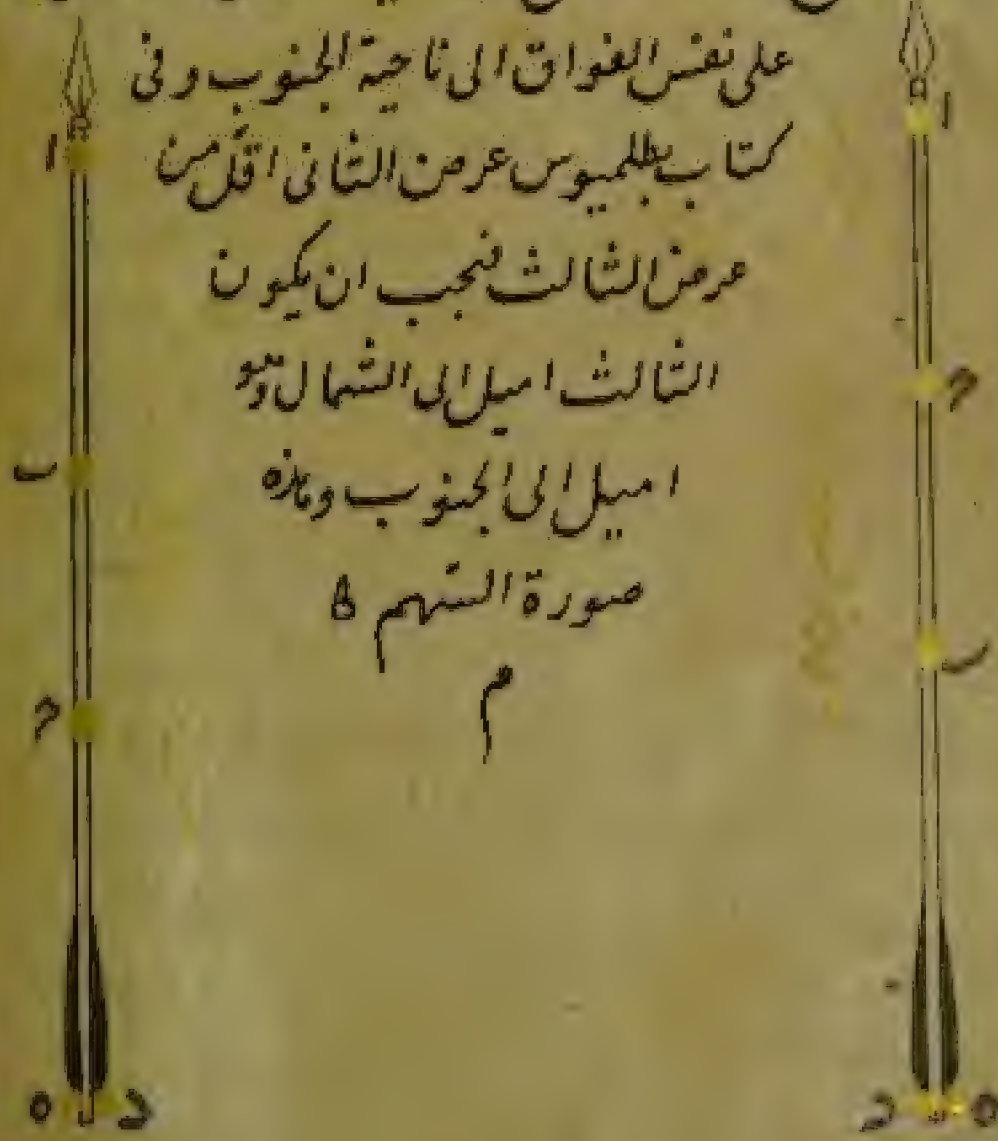 على نفس الفواق الى ناحية الجنوب وفى
كتاب بطلميوس عرض الثانى اقل من
عرض الثالث فيجب ان يكون
الثالث اميل الى الشمال وهو
اميل الى الجنوب وهذه
صورة السهم ه
م
ا
ب
ح
ه د
ا
ح
ب
د ه